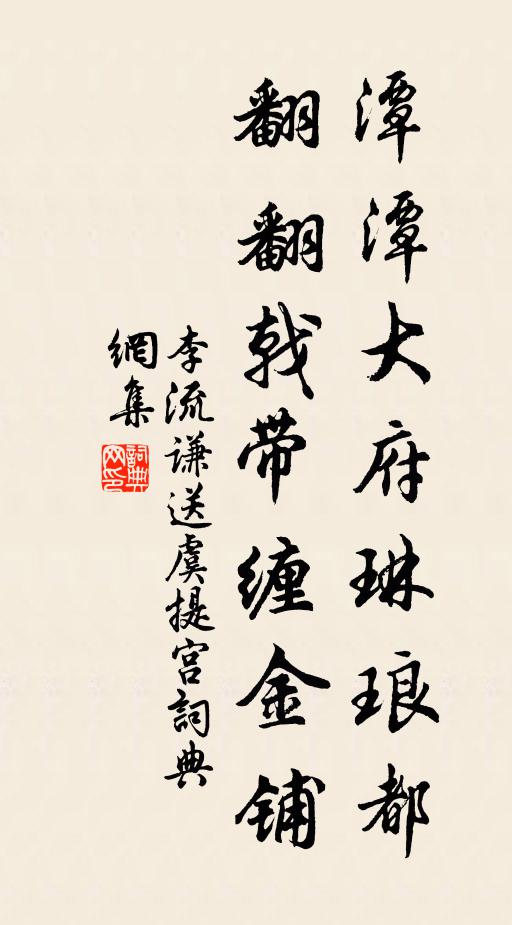 潭潭大府琳琅都
翻翻戟带缠金铺
李流谦送虞提宫詞典
網集
詞典
网印